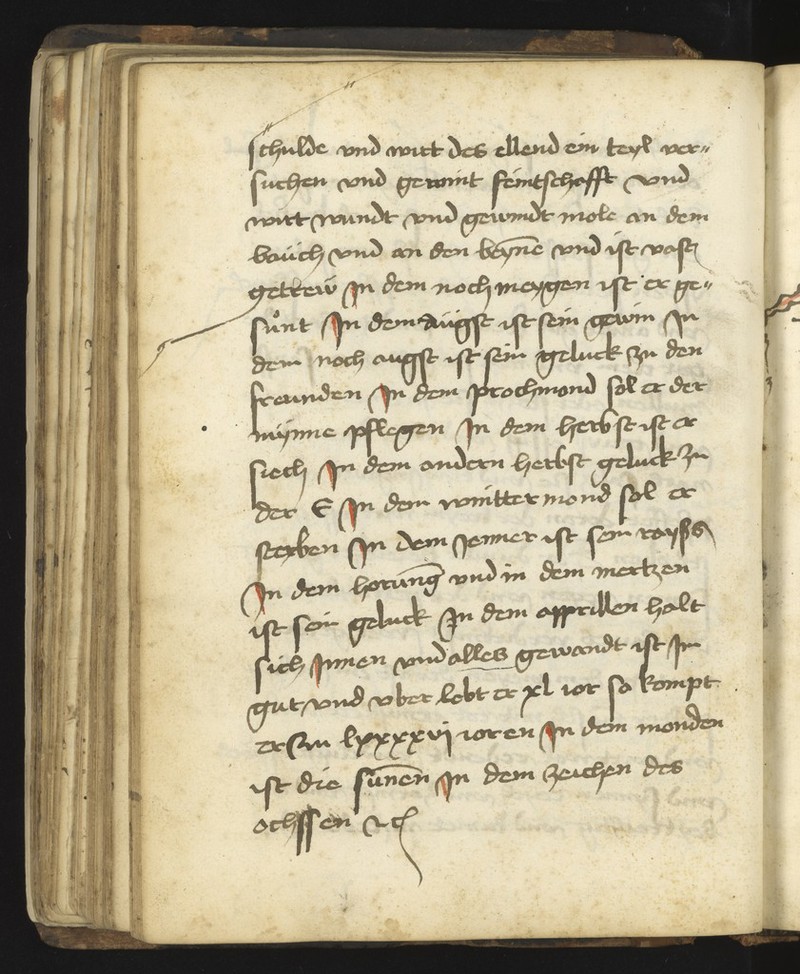 schulde vnd wirt des ellend ein teyl ver„
suchen vnd gewint feintschafft vnd
wirt wundt vnd gewindt mole an dem
bauch vnd an den beyne vnd ist vast
getrew In dem noch meygen ist er ge„
sunt In dem augst ist sein gewin In
dem noch augst ist sein geluck zu den
freunden In dem prochmond sol er der
mynne pflegen In dem herbst ist er
siech In dem andern herbst geluck zu
der E In dem wintter mond sol er
sterben In dem Jenner ist sein rayß
In dem horung vnd in dem mertzen
ist sein geluck In dem apprillen halt
sich Innen vnd alles gewandt ist Im
gut vnd vber lebt er xl ior so kompt
er zu lxxxxvj ioren In dem monden
ist die sunen In dem zeichen des
ochssen